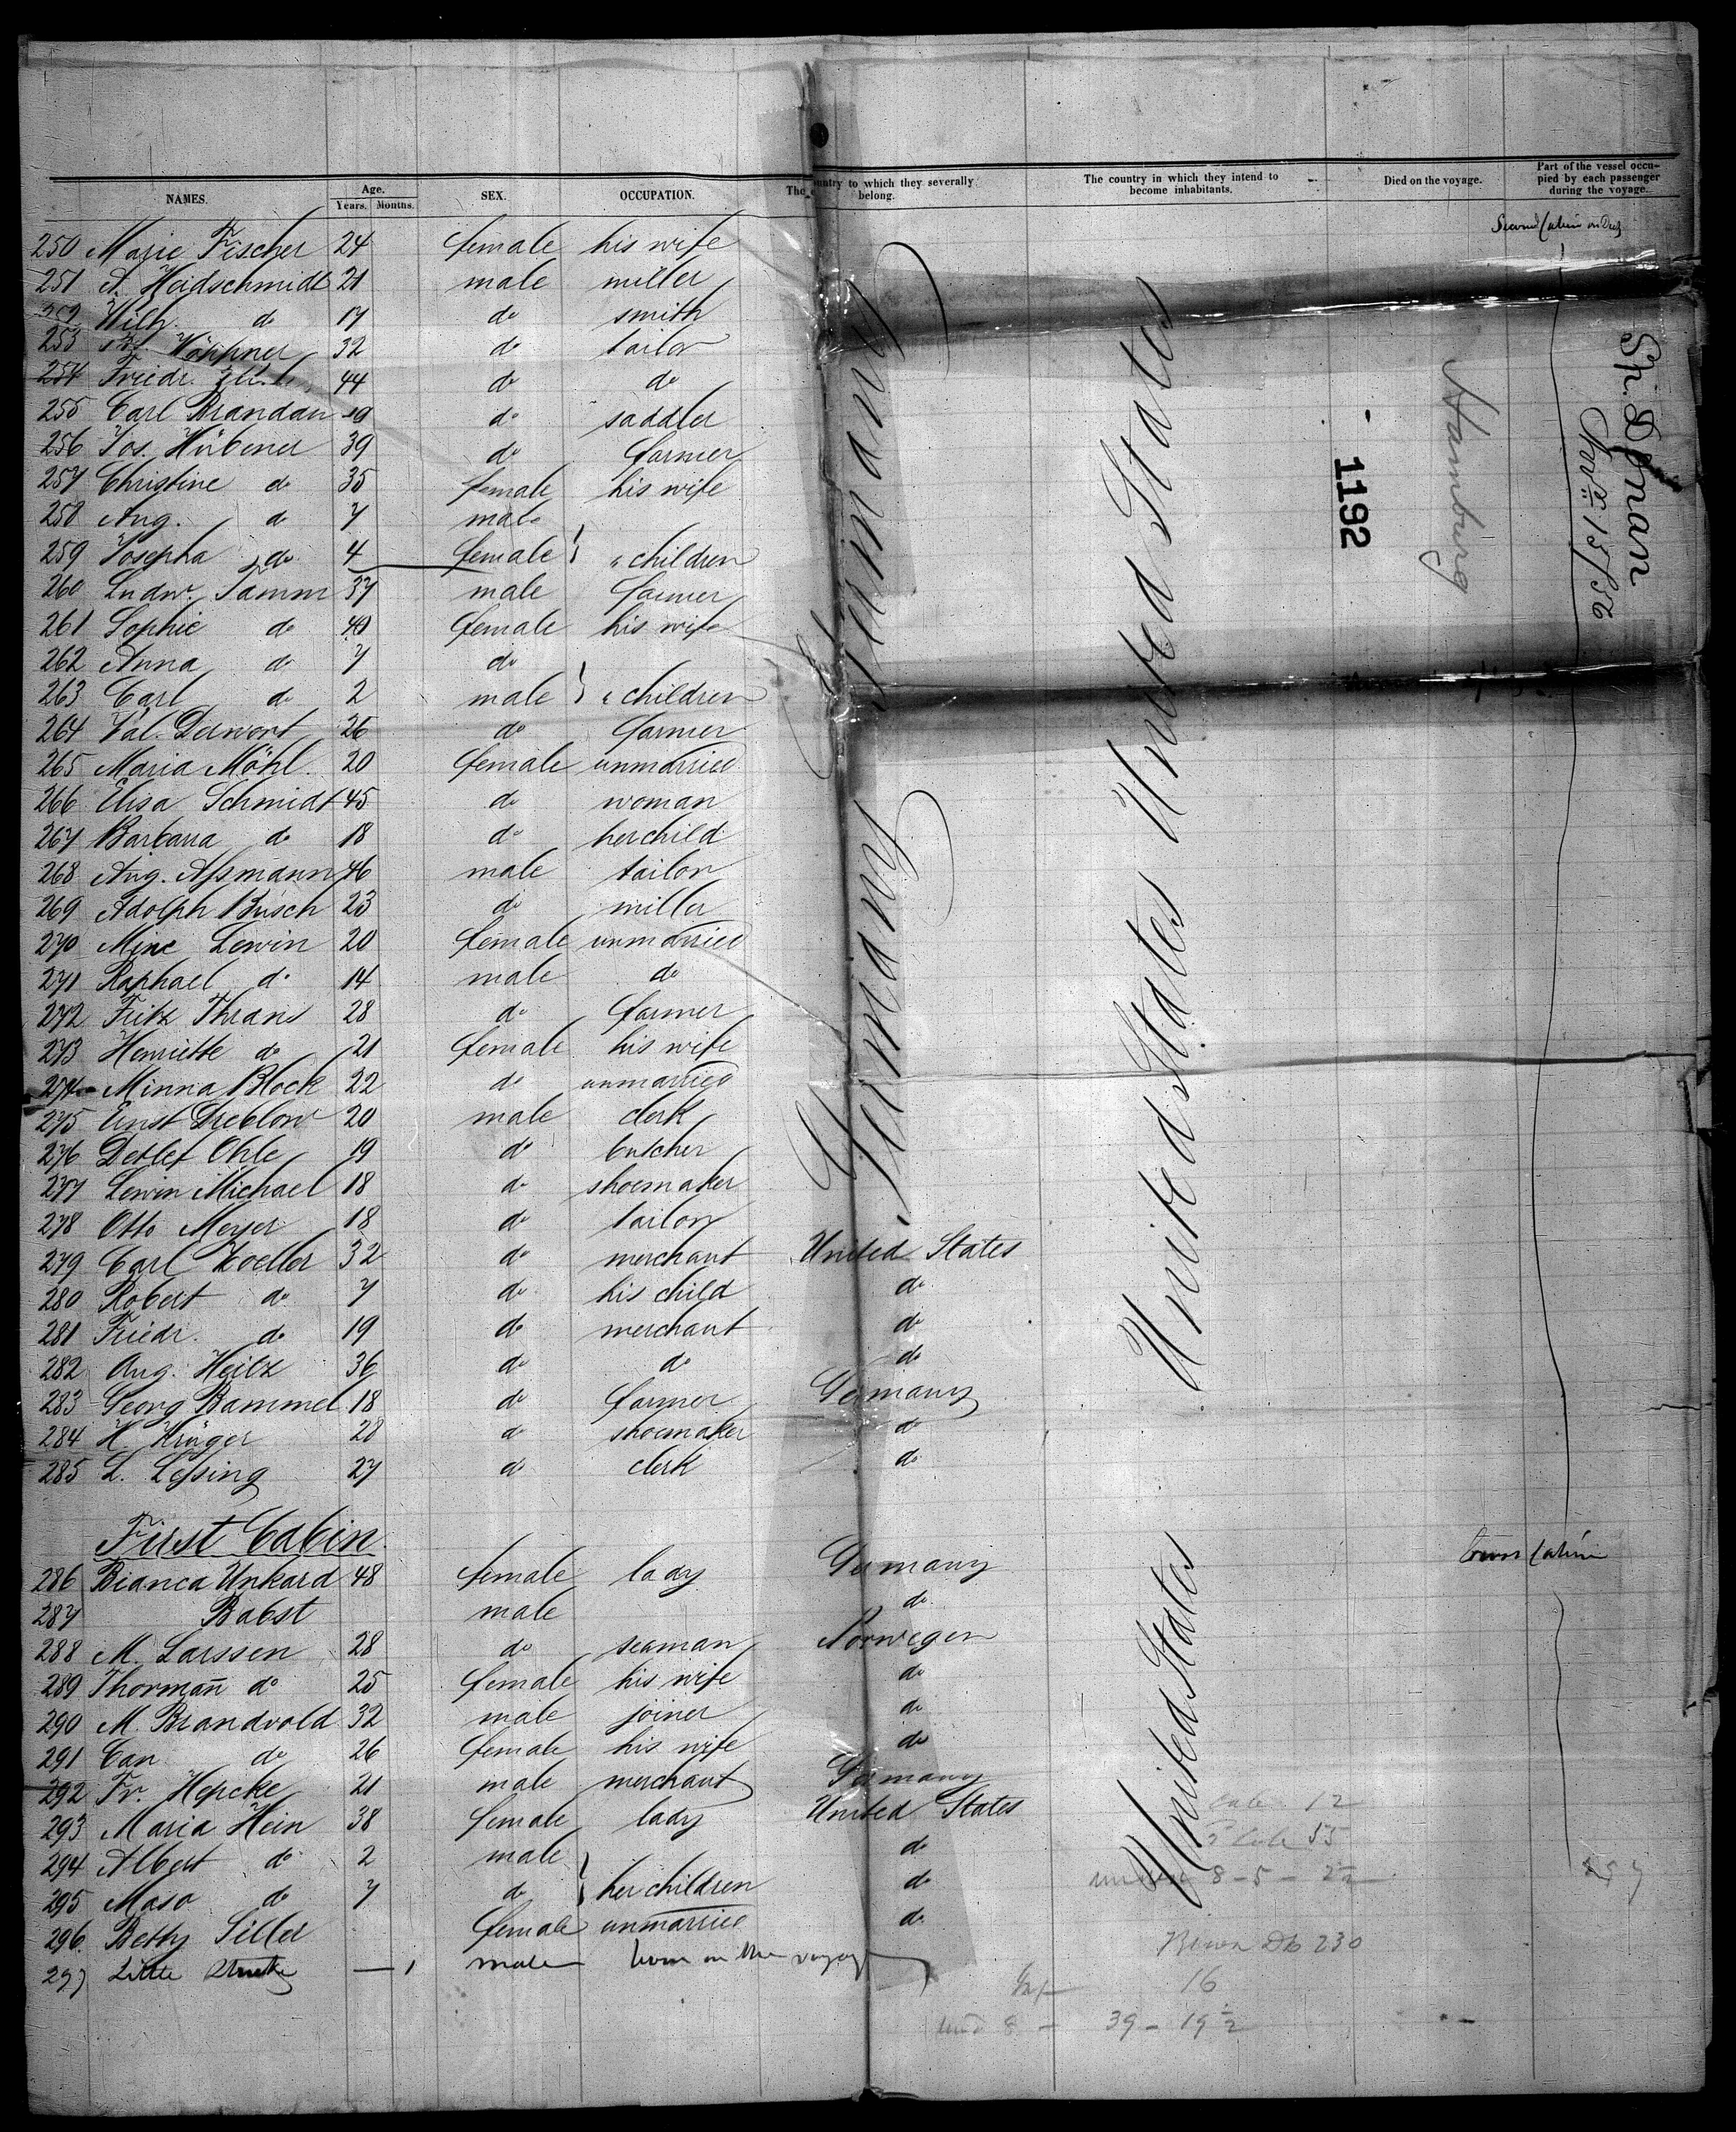 NAMES. Age. Years. Months. SEX. OCCUPATION. The country to which they severally belong. The country in which they intend to become inhabitants. Died on the voyage. Part of the vessel occupied by each passenger during the voyage.
Second Cabin on Deck
250 Marie Fischer 24 female his wife
251 A. Heidschmidt 21 male miller
252 Wilh. do 17 do smith
253 Höppner 32 do tailor
254 Friedr. 44 do do
255 Carl Brandau do saddler
256 Jos. Hübener 39 do farmer
257 Christine do 35 female his wife
258 Aug. do 7 male
259 Josepha do 4 female } " children
260 Ludw. Tamm 37 male farmer
261 Sophie do 40 female his wife
262 Anna do 7 do
263 Carl do 2 male } " children
264 Val. Derwort 26 do farmer
265 Maria Möhl. 20 female unmarried
266 Elisa Schmidt 45 do woman
267 Barbara do 18 do her child
268 Aug. Assmann 46 male tailor
269 Adolph Busch 23 do miller
270 Mine Lewin 20 female unmarried
271 Raphael do 14 male do
272 Fritz Thrans 28 do farmer
273 Henriette do 21 female his wife
274 Minna Block 22 do unmarried
275 Ernst Dreblow 20 male clerk
276 Detlef Ohle 19 do butcher
277 Lewin Michael 18 do shoemaker
278 Otto Meyer 18 do tailor
279 Carl Zoeller 32 do merchant United States
280 Robert do 7 do his child do
281 Friedr. do 19 do merchant do
282 Aug. Heitz 36 do do do
283 Georg Bammel 18 do farmer Germany
284 H. Krüger 28 do shoemaker do
285 L. Lessing 27 do clerk do
Germany
Germany
United States
United States
1192
Hamburg
Sp. Donan
Nov. 15/86
First Cabin
286 Bianca Unkard 48 female lady Germany
287 Babst male do
288 M. Larssen 28 do seaman Norwegen
289 Thormann do 25 female his wife do
290 M. Brandvold 32 male joiner do
291 Can do 26 female his wife do
292 Fr. Hepcke 21 male merchant Germany
293 Maria Hein 38 female lady United States
294 Albert do 2 male do
295 Maso do 7 do } her children do
296. Betty Siller female unmarried do
297 Little male born on the voyage
United States
Cabin
12
55
8 - 5 - 2½
297
230
16
8 - 39 - 19½